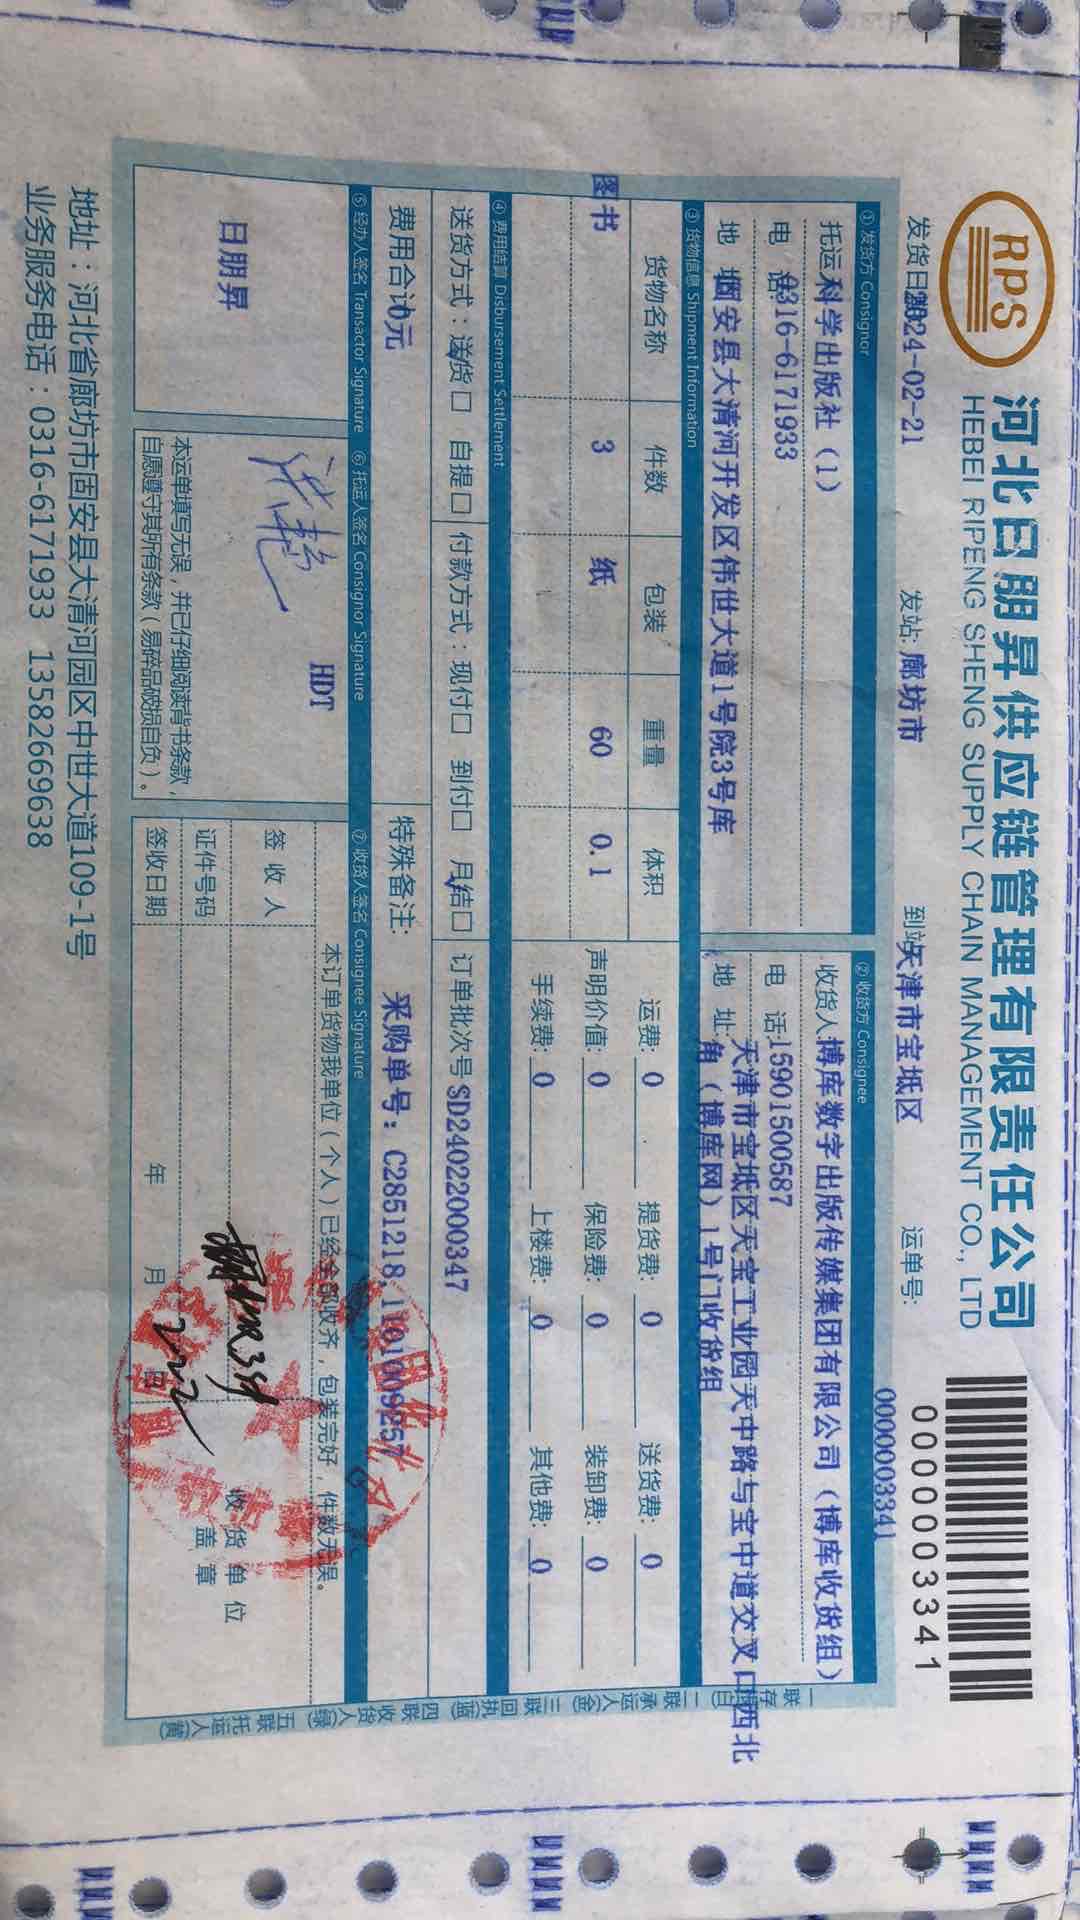 RPS
河北日朋昇供应链管理有限责任公司
HEBEI RIPENG SHENG SUPPLY CHAIN MANAGEMENT CO., LTD
0000003341
0000003341
发货日期2024-02-21 发站:廊坊市 到站天津市宝坻区 运单号:
①发货方 Consignor
托运科学出版社（1）
电 话0316-6171933
地 固安县大清河开发区伟世大道1号院3号库
②收货方 Consignee
收货人博库数字出版传媒集团有限公司（博库收货组）
电 话:15901500587
地 址:天津市宝坻区天宝工业园天中路与宝中道交叉口西北
角（博库网）1号门收货组
③货物信息 Shipment Information
货物名称 件数 包装 重量 体积
图书 3 纸 60 0.1
运费: 0 提货费: 0 送货费: 0
声明价值: 0 保险费: 0 装卸费: 0
手续费: 0 上楼费: 0 其他费: 0
④费用结算 Disbursement Settlement
送货方式：送货☑ 自提□ 付款方式：现付□ 到付□ 月结☑ 订单批次号SD2402200000347
费用合计0元
特殊备注: 采购单号：C2851218,1101009257
⑤经办人签名 Transactor Signature ⑥托运人签名 Consignor Signature ⑦收货人签名 Consignee Signature
日朋昇
HDT
本运单填写无误，并已仔细阅读背书条款，
自愿遵守其所有条款（易碎品破损自负）。
本订单货物我单位（个人）已经全部收齐，包装完好，件数无误。
签 收 人
证件号码
签收日期 年 月 日
2.22
收 货 单 位
盖 章
一联存根(白) 二联承运人(金) 三联回执(蓝) 四联收货人(绿) 五联托运人(黄)
地址：河北省廊坊市固安县大清河园区中世大道109-1号
业务服务电话：0316-6171933 13582669638